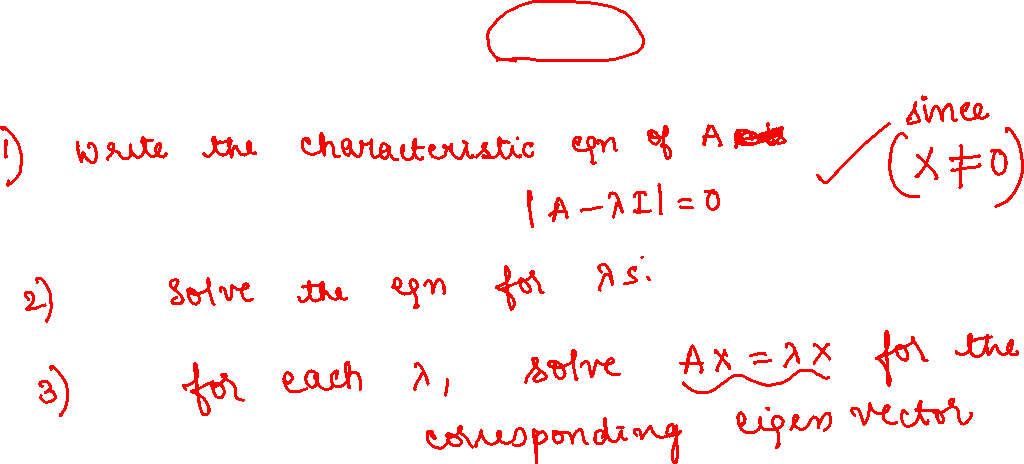 since
1) write the characteristic eqn of A (X ≠ 0)
|A - λI| = 0
2) Solve the eqn for λs.
3) for each λ, solve AX = λX for the
corresponding eigen vector